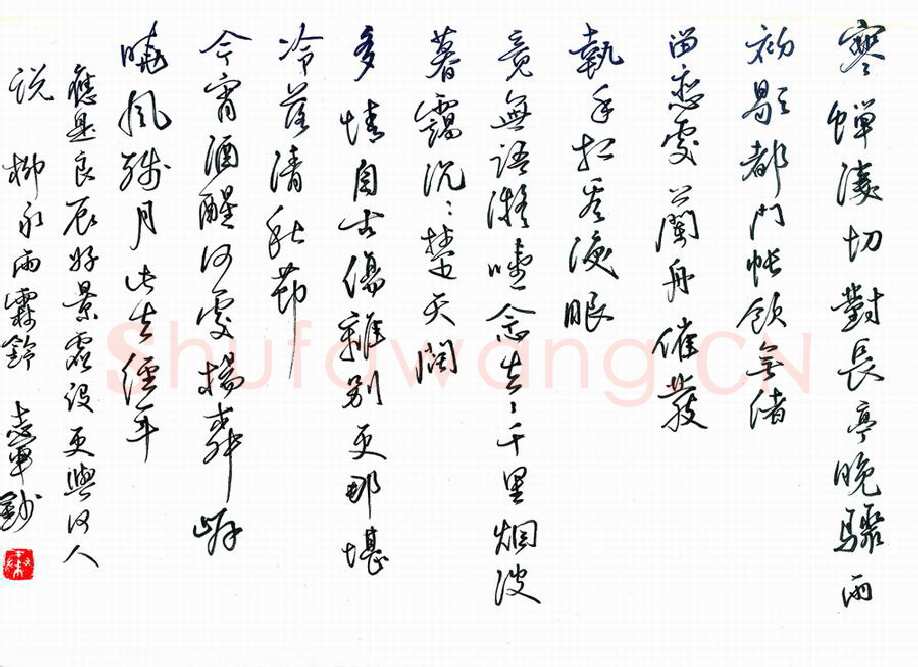 寒蟬淒切對長亭晚驟雨
初歇都門帐飲無緒
留恋處蘭舟催發
執手相看淚眼
竟無語凝噎念去〻千里烟波
暮靄沉〻楚天闊
多情自古傷離別更那堪
冷落清秋節
今宵酒醒何處楊柳岸
曉風殘月此去經年
應是良辰好景虛設更與何人
说 柳永雨霖鈴 鈔
Shufawang.CN